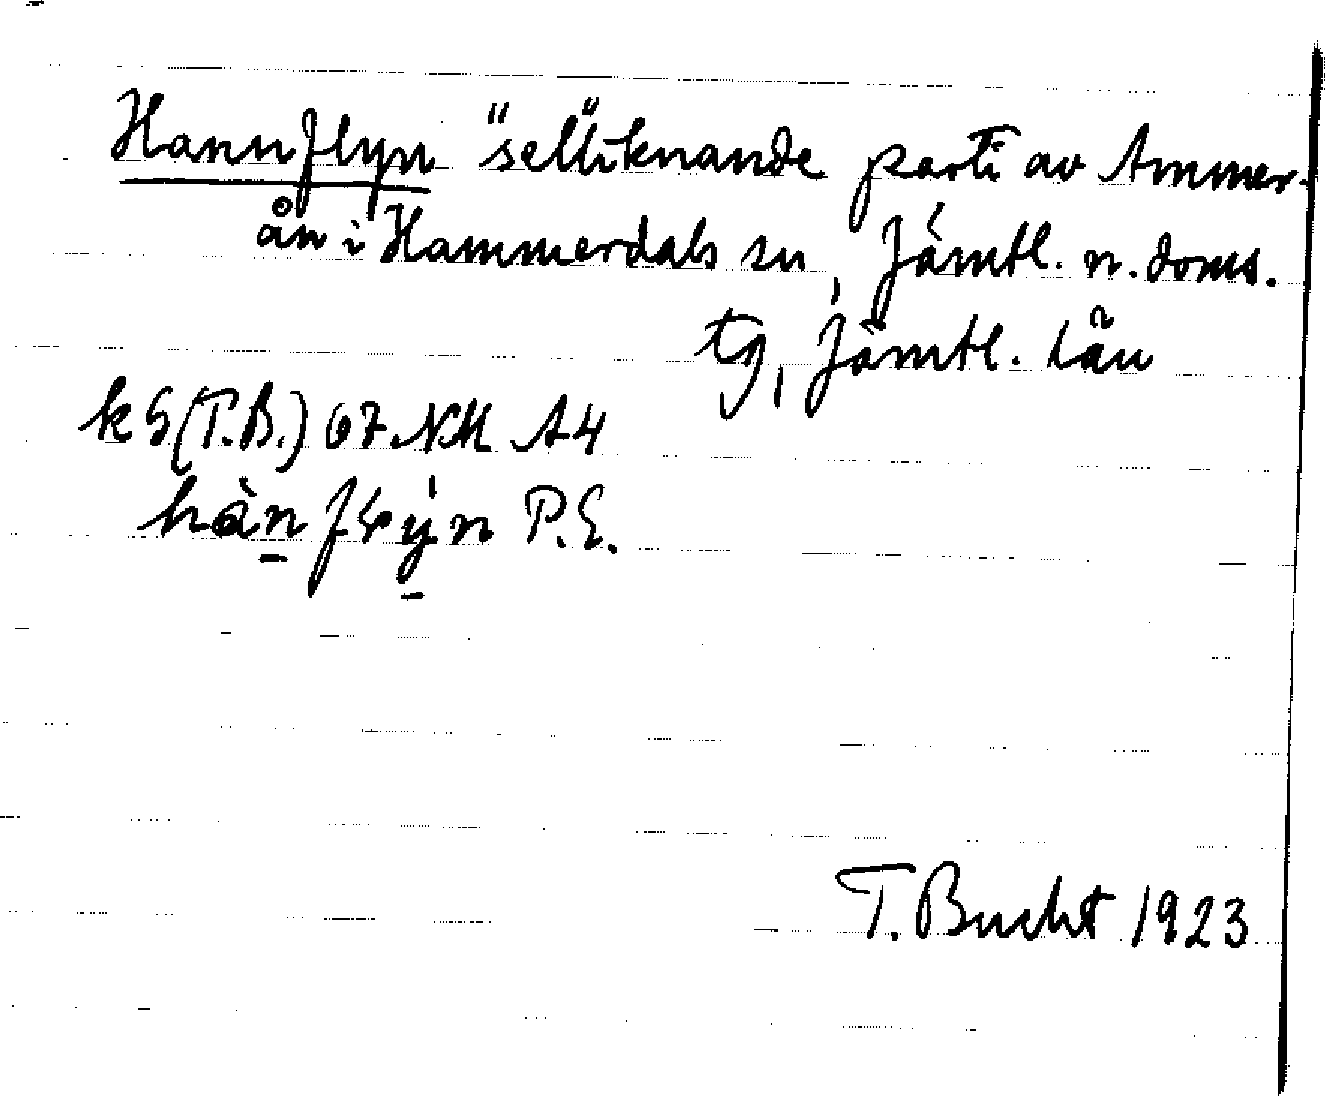 Hannflyn "selliknande parti av Ammer-
ån i Hammerdals sn, Jämtl. n. doms.
tg, Jämtl. län
k G (T.B.) 67. NM A4
hàn flýn P.E.
T. Bucht 1923